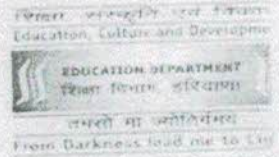 शिक्षा संस्कृति एवं विकास
Education, Culture and Developme
EDUCATION DEPARTMENT
शिक्षा विभाग, हरियाणा
तमसो मा ज्योतिर्गमय
From Darkness lead me to Lig